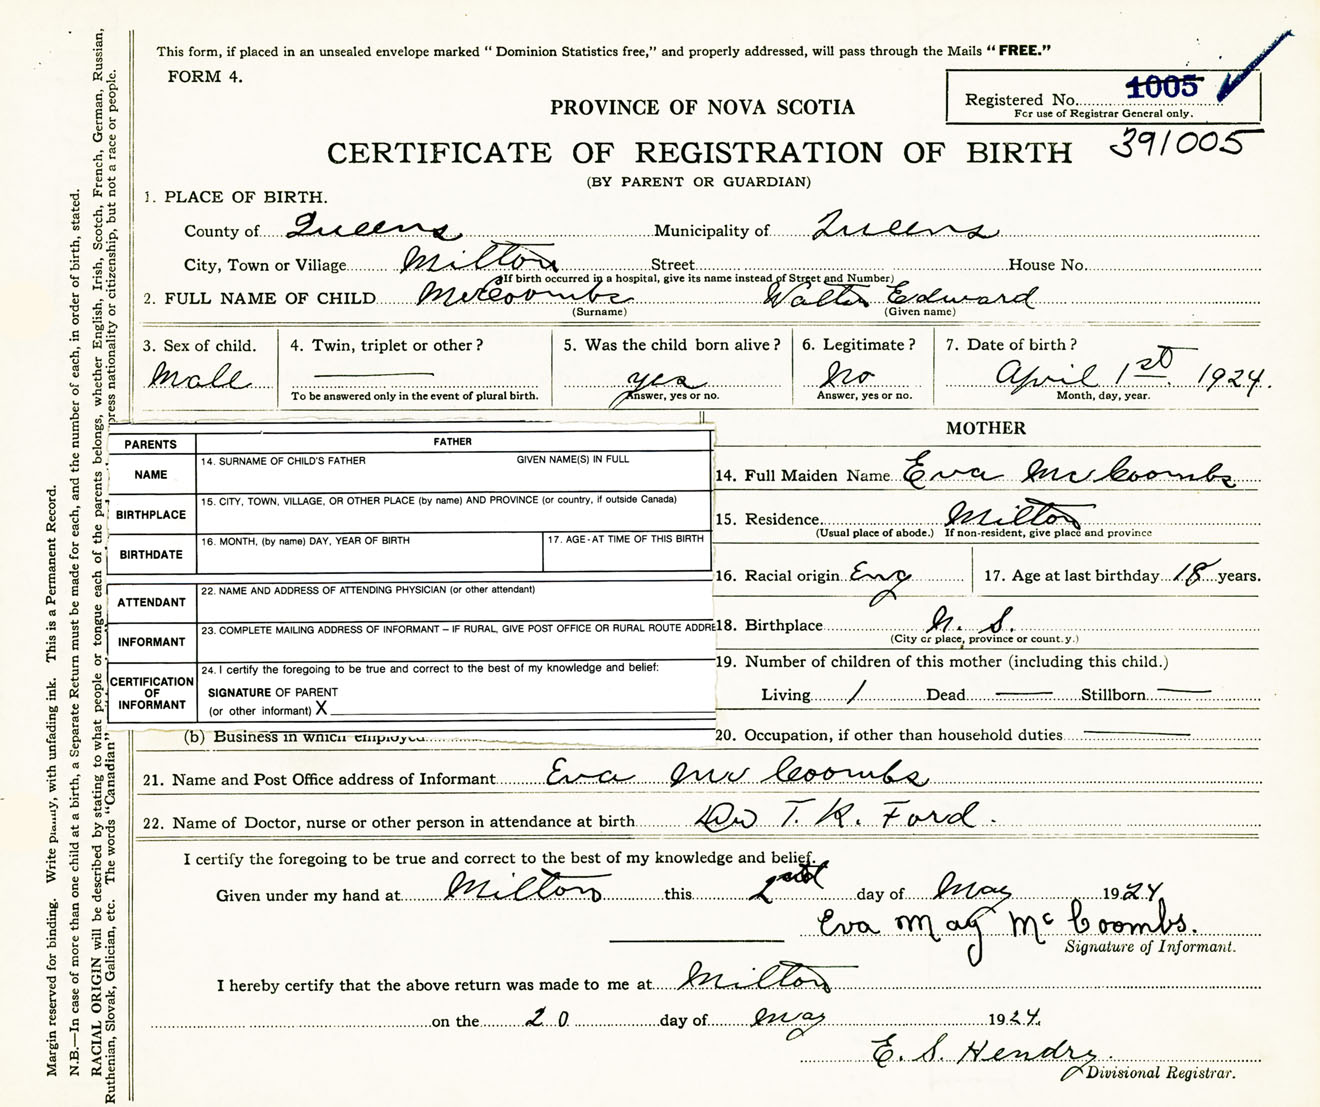 This form, if placed in an unsealed envelope marked "Dominion Statistics free," and properly addressed, will pass through the Mails "FREE."
FORM 4.
1005
Registered No.
For use of Registrar General only.
391005
PROVINCE OF NOVA SCOTIA
CERTIFICATE OF REGISTRATION OF BIRTH
(BY PARENT OR GUARDIAN)
1. PLACE OF BIRTH.
County of Queens Municipality of Queens
City, Town or Village Milton Street House No.
(If birth occurred in a hospital, give its name instead of Street and Number)
2. FULL NAME OF CHILD McCoombs Walter Edward
(Surname) (Given name)
3. Sex of child. 4. Twin, triplet or other? 5. Was the child born alive? 6. Legitimate? 7. Date of birth?
Male yes No April 1st 1924.
To be answered only in the event of plural birth. Answer, yes or no. Answer, yes or no. Month, day, year.
PARENTS FATHER
NAME 14. SURNAME OF CHILD'S FATHER GIVEN NAME(S) IN FULL
BIRTHPLACE 15. CITY, TOWN, VILLAGE, OR OTHER PLACE (by name) AND PROVINCE (or country, if outside Canada)
BIRTHDATE 16. MONTH, (by name) DAY, YEAR OF BIRTH 17. AGE - AT TIME OF THIS BIRTH
ATTENDANT 22. NAME AND ADDRESS OF ATTENDING PHYSICIAN (or other attendant)
INFORMANT 23. COMPLETE MAILING ADDRESS OF INFORMANT – IF RURAL, GIVE POST OFFICE OR RURAL ROUTE ADDRE
CERTIFICATION OF INFORMANT 24. I certify the foregoing to be true and correct to the best of my knowledge and belief:
SIGNATURE OF PARENT
(or other informant) X
MOTHER
14. Full Maiden Name Eva McCoombs
15. Residence Milton
(Usual place of abode.) If non-resident, give place and province
16. Racial origin Eng 17. Age at last birthday 18 years.
18. Birthplace N. S.
(City or place, province or county.)
19. Number of children of this mother (including this child.)
Living 1 Dead — Stillborn —
(b) Business in which employed 20. Occupation, if other than household duties —
21. Name and Post Office address of Informant Eva McCoombs
22. Name of Doctor, nurse or other person in attendance at birth Dr T. R. Ford.
I certify the foregoing to be true and correct to the best of my knowledge and belief.
Given under my hand at Milton this 2nd day of May 1924
Eva May McCoombs.
Signature of Informant.
I hereby certify that the above return was made to me at Milton
on the 20 day of May 1924.
E. S. Hendry
Divisional Registrar.
Margin reserved for binding. Write plainly, with unfading ink. This is a Permanent Record.
N.B.—In case of more than one child at a birth, a Separate Return must be made for each, and the number of each, in order of birth, stated.
RACIAL ORIGIN will be described by stating to what people or tongue each of the parents belongs, whether English, Irish, Scotch, French, German, Russian,
Ruthenian, Slovak, Galician, etc. The words "Canadian" press nationality or citizenship, but not a race or people.